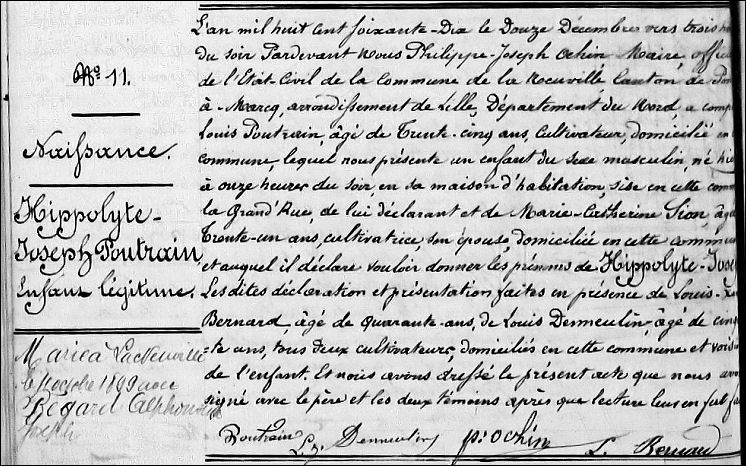 N.º 11.
Naissance.
Hippolyte-
Joseph Poutrain
Enfant légitime.
Marié à
le 1899 avec
Bégard Alphonsine
Joseph
L'an mil huit cent soixante-Dix le Douze Décembre vers trois
du soir Pardevant Nous Philippe-Joseph Ochin Maire, offic
de l'Etat-Civil de la Commune de la Neuville Canton de Pon
à-Marcq, arrondissement de Lille, Département du Nord a comp
Louis Poutrain, âgé de Trente-cinq ans, Cultivateur, domicilié en
commune, lequel nous présente un enfant du sexe masculin, né hie
à onze heures du soir, en sa maison d'habitation, sise en cette comm
la Grand'Rue, de lui déclarant et de Marie-Catherine Sion, âg
Trente-un ans, cultivatrice, son épouse, domiciliée en cette commu
et auquel il déclare vouloir donner les prénoms de Hippolyte-Jose
Les dites déclaration et présentation faites en présence de Louis-
Bernard, âgé de quarante-ans, de Louis Denneulin, âgé de cinq
-te ans, tous deux cultivateurs, domiciliés en cette commune et vois
de l'enfant. Et nous avons dressé le présent acte que nous av
signé avec le père et les deux témoins après que lecture leur en fut fa
Poutrain L. Denneulin p: j ochin L. Bernard